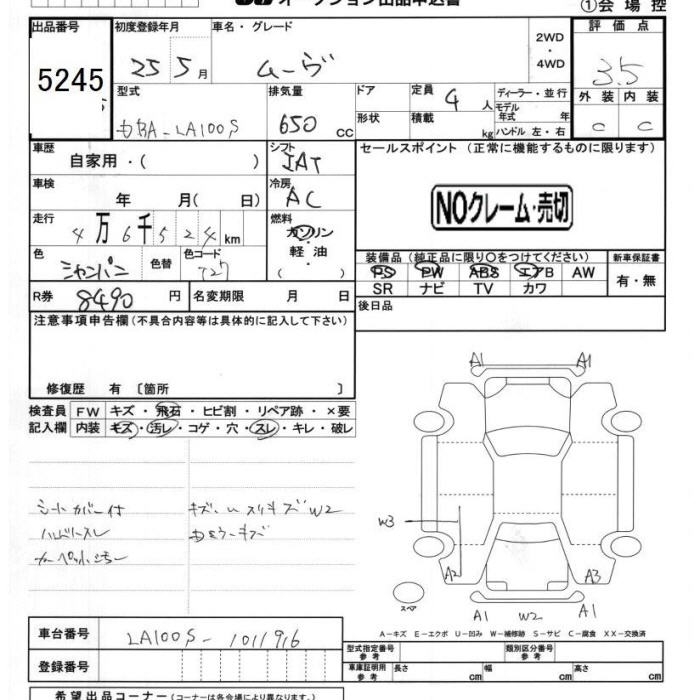 ①会場控
出品番号
5245
初度登録年月
25 5月
車名・グレード
ムーヴ
2WD
・
4WD
評価点
3.5
型式
DBA-LA100S
排気量
650 CC
ドア
定員
4人
ディーラー・並行
外装 内装
C C
形状
積載 kg
モデル年式 年
ハンドル 左・右
車歴
自家用・( )
シフト
IAT
セールスポイント (正常に機能するものに限ります)
NOクレーム・売切
車検
年 月( 日)
冷房
AC
走行
4万6千524km
燃料
ガソリン
軽油
( )
色
シャンパン
色替
色コード
T27
装備品(純正品に限り○をつけてください)
PS PW ABS エアB AW
SR ナビ TV カワ
新車保証書
有・無
R券
8490円
名変期限 月 日
後日品
注意事項申告欄(不具合内容等は具体的に記入して下さい)
修復歴 有〔箇所 〕
検査員記入欄
FW キズ・飛石・ヒビ割・リペア跡・×要
内装 キズ・汚レ・コゲ・穴・スレ・キレ・破レ
シートカバー付
ハンドルスレ
キズ・スリキズW2
A1 A1
W3
A2 A3
スペア
A1 W2 A1
A-キズ E-エクボ U-凹み W-補修跡 S-サビ C-腐食 XX-交換済
車台番号
LA100S-1011916
登録番号
型式指定番号 参考
類別区分番号 参考
車庫証明用 参考
長さ cm 幅 cm 高さ cm
希望出品コーナー(コーナーは各会場により異なります。)